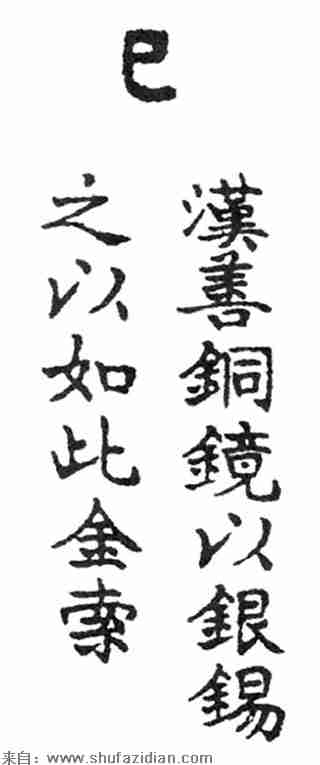 巳
漢善銅鏡以銀錫
之以如此金索
来自：www.shufazidian.com